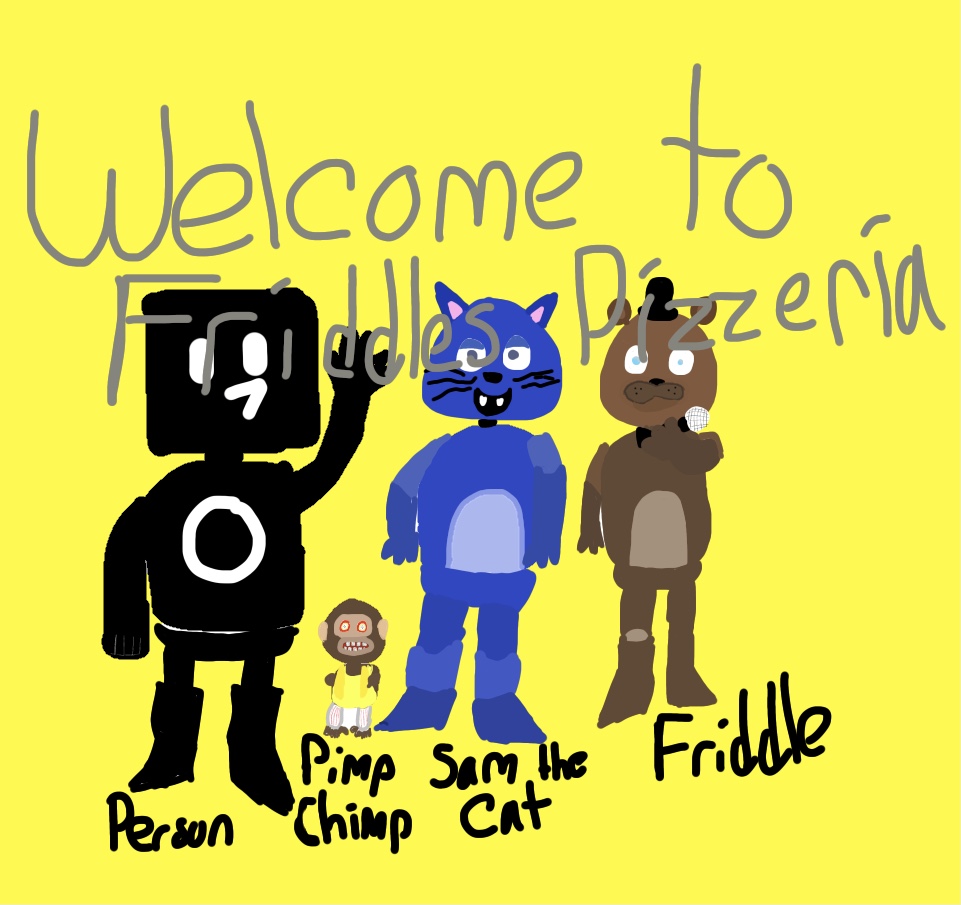 Welcome to
Friddles Pizzeria
Person
Pimp Chimp
Sam the Cat
Friddle